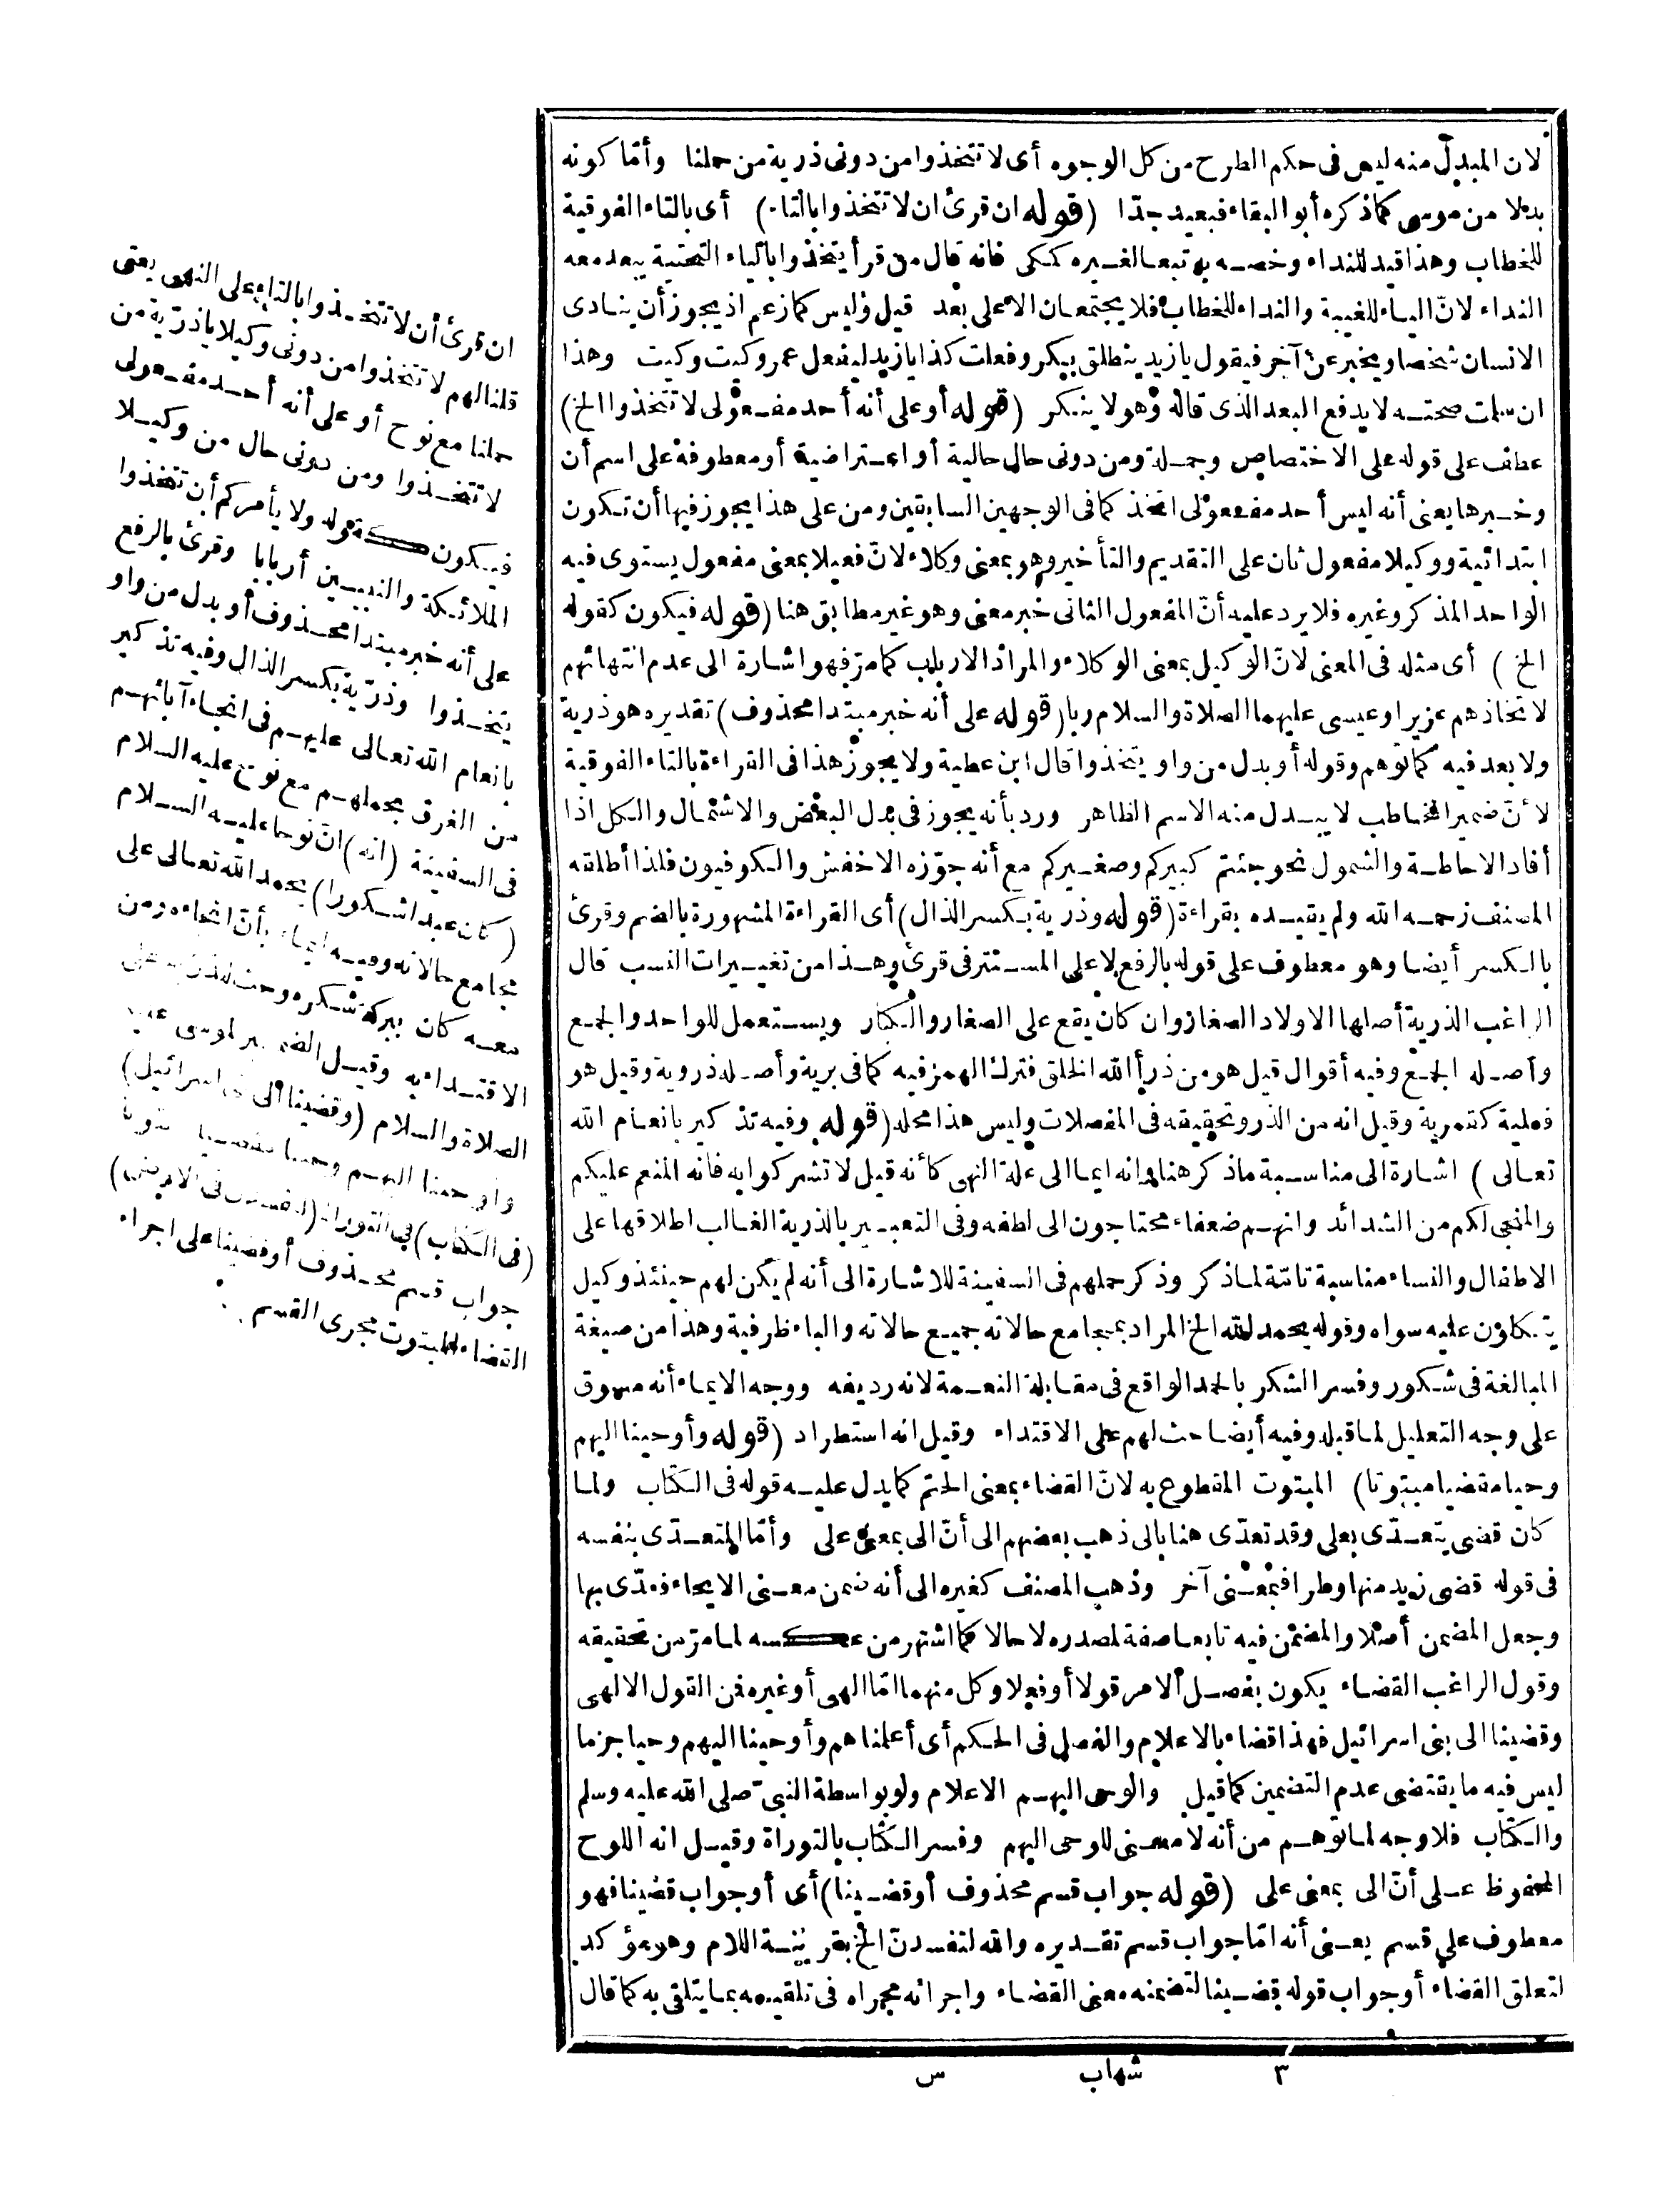 لان المبدل منه ليس فى حكم الطرح من كل الوجوه أى لا تتخذوا من دونى ذرية من حملنا وأمّا كونه
بدلا من موسى كما ذكره أبو البقاء فبعيد جدّا (قوله ان قرئ ان لا تتخذوا بالتاء) أى بالتاء الفوقية
للخطاب وهذا قيد للنداء وخصه به تبعا لغيره كمكى فانه قال من قرأ يتخذوا بالياء التحتية يبعد معه
النداء لانّ الياء للغيبة والنداء للخطاب فلا يجتمعان الا على بعد قيل وليس كما زعم اذ يجوز أن ينادى
الانسان شخصا ويخبر عن آخر فيقول يا زيد ينطلق بكر وفعلت كذا يا زيد ليفعل عمرو كيت وكيت وهذا
ان سلمت صحته لا يدفع البعد الذى قاله وهو لا ينكر (قوله أو على أنه أحد مفعولى لا تتخذوا الخ)
عطف على قوله على الاختصاص وجملة ومن دونى حال حالية أو اعتراضية أو معطوفة على اسم أن
وخبرها يعنى أنه ليس أحد مفعولى اتخذ كما فى الوجهين السابقين ومن على هذا يجوز فيها أن تكون
ابتدائية ووكيلا مفعول ثان على التقديم والتأخير وهو بمعنى وكلاء لانّ فعيلا بمعنى مفعول يستوى فيه
الواحد المذكر وغيره فلا يرد عليه أنّ المفعول الثانى خبر معنى وهو غير مطابق هنا (قوله فيكون كقوله
الخ) أى مثله فى المعنى لانّ الوكيل بمعنى الوكلاء والمراد الارباب كما مرّ فهو اشارة الى عدم انتهائهم
لاتخاذهم عزيرا وعيسى عليهما الصلاة والسلام ربا (قوله على أنه خبر مبتدا محذوف) تقديره هو ذرية
ولا بعد فيه كما توهم وقوله أو بدل من واو يتخذوا قال ابن عطية ولا يجوز هذا فى القراءة بالتاء الفوقية
لأنّ ضمير المخاطب لا يبدل منه الاسم الظاهر ورد بأنه يجوز فى بدل البعض والاشتمال والكل اذا
أفاد الاحاطة والشمول نحو جئتم كبيركم وصغيركم مع أنه جوّزه الاخفش والكوفيون فلذا أطلقه
المصنف رحمه الله ولم يقيده بقراءة (قوله وذرية بكسر الذال) أى القراءة المشهورة بالضم وقرئ
بالكسر أيضا وهو معطوف على قوله بالرفع لا على المستتر فى قرئ وهذا من تغييرات النسب قال
الراغب الذرية أصلها الاولاد الصغار وان كان يقع على الصغار والكبار ويستعمل للواحد والجمع
وأصله الجمع وفيه أقوال قيل هو من ذرأ الله الخلق فترك الهمز فيه كما فى برية وأصله ذروية وقيل هو
فعلية كقمرية وقيل انه من الذر وتحقيقه فى المفصلات وليس هذا محله (قوله وفيه تذكير بانعام الله
تعالى) اشارة الى مناسبة ما ذكر هنا وانه ايما الى علة النهى كأنه قيل لا تشركوا به فانه المنعم عليكم
والمنجى لكم من الشدائد وانهم ضعفاء محتاجون الى لطفه وفى التعبير بالذرية الغالب اطلاقها على
الاطفال والنساء مناسبة تامّة لما ذكر وذكر حملهم فى السفينة للاشارة الى أنه لم يكن لهم حينئذ وكيل
يتكلون عليه سواه وقوله يحمد الله الخ المراد بمجامع حالاته جميع حالاته والباء ظرفية وهذا من صيغة
المبالغة فى شكور وفسر الشكر بالحمد الواقع فى مقابلة النعمة لانه رديفه ووجه الايماء أنه مسوق
على وجه التعليل لما قبله وفيه أيضا حث لهم على الاقتداء وقيل انه استطراد (قوله وأوحينا اليهم
وحيا مقضيا مبتوتا) المبتوت المقطوع به لانّ القضاء بمعنى الحتم كما يدل عليه قوله فى الكتاب ولما
كان قضى يتعدّى بعلى وقد تعدّى هنا بالى ذهب بعضهم الى أنّ الى بمعنى على وأمّا المتعدّى بنفسه
فى قوله قضى زيد منها وطرا فبمعنى آخر وذهب المصنف كغيره الى أنه ضمن معنى الايحاء فعدّى بها
وجعل المضمن أصلا والمضمن فيه تابعا صفة لمصدره لا حالا كما اشتهر من عكسه لما مرّ من تحقيقه
وقول الراغب القضاء يكون بفصل الامر قولا أو فعلا وكل منهما امّا الهى أو غيره فمن القول الالهى
وقضينا الى بنى اسرائيل فهذا قضاء بالاعلام والفصل فى الحكم أى أعلمناهم وأوحينا اليهم وحيا جزما
ليس فيه ما يقتضى عدم التضمين كما قيل والوحى اليهم الاعلام ولو بواسطة النبىّ صلى الله عليه وسلم
والكتاب فلا وجه لما توهم من أنه لا معنى للوحى اليهم وفسر الكتاب بالتوراة وقيل انه اللوح
المحفوظ على أنّ الى بمعنى على (قوله جواب قسم محذوف أو قضينا) أى أو جواب قضينا فهو
معطوف على قسم يعنى أنه امّا جواب قسم تقديره والله لتفسدنّ الخ بقرينة اللام وهو مؤكد
لتعلق القضاء أو جواب قوله قضينا لتضمنه معنى القضاء واجرائه مجراه فى تلقيه بما يتلقى به كما قال
ان قرئ أن لا تتخذوا بالتاء على النهى يعنى
قلنا لهم لا تتخذوا من دونى وكيلا يا ذرّية من
حملنا مع نوح أو على أنه أحد مفعولى
لا تتخذوا ومن دونى حال من وكيلا
فيكون كقوله ولا يأمركم أن تتخذوا
الملائكة والنبيين أربابا وقرئ بالرفع
على أنه خبر مبتدا محذوف أو بدل من واو
يتخذوا وذرّية بكسر الذال وفيه تذكير
بانعام الله تعالى عليهم فى انجاء آبائهم
من الغرق بحملهم مع نوح عليه السلام
فى السفينة (انه) انّ نوحا عليه السلام
(كان عبدا شكورا) يحمد الله تعالى على
مجامع حالاته وفيه ايماء بأنّ انجاءه ومن
معه كان ببركة شكره وحث للذرّية على
الاقتداء به وقيل الضمير لموسى عليه
الصلاة والسلام (وقضينا الى بنى اسرائيل)
وأوحينا اليهم وحيا مقضيا مبتوتا
(فى الكتاب) فى التوراة (لتفسدن فى الارض)
جواب قسم محذوف أو قضينا على اجراء
القضاء المبتوت مجرى القسم
٣ شهاب س